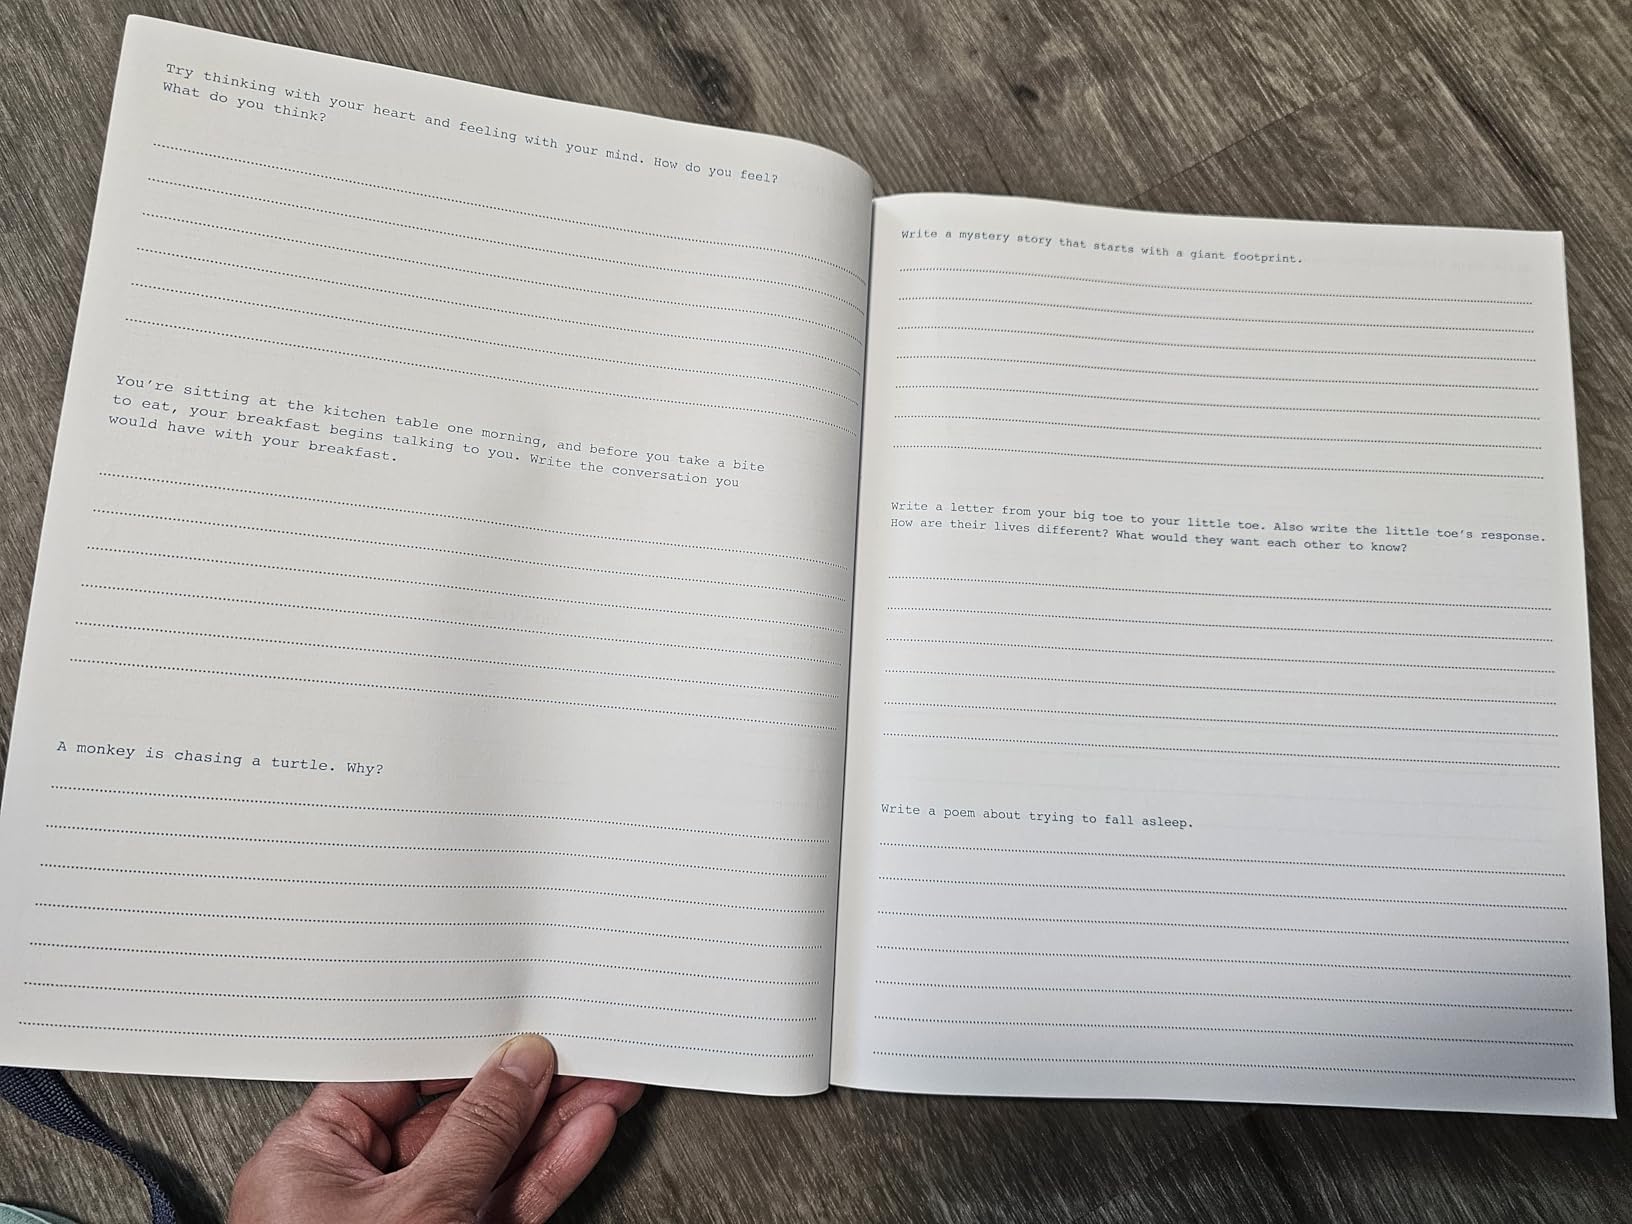 Try thinking with your heart and feeling with your mind. How do you feel?
What do you think?
You're sitting at the kitchen table one morning, and before you take a bite
to eat, your breakfast begins talking to you. Write the conversation you
would have with your breakfast.
A monkey is chasing a turtle. Why?
Write a mystery story that starts with a giant footprint.
Write a letter from your big toe to your little toe. Also write the little toe's response.
How are their lives different? What would they want each other to know?
Write a poem about trying to fall asleep.